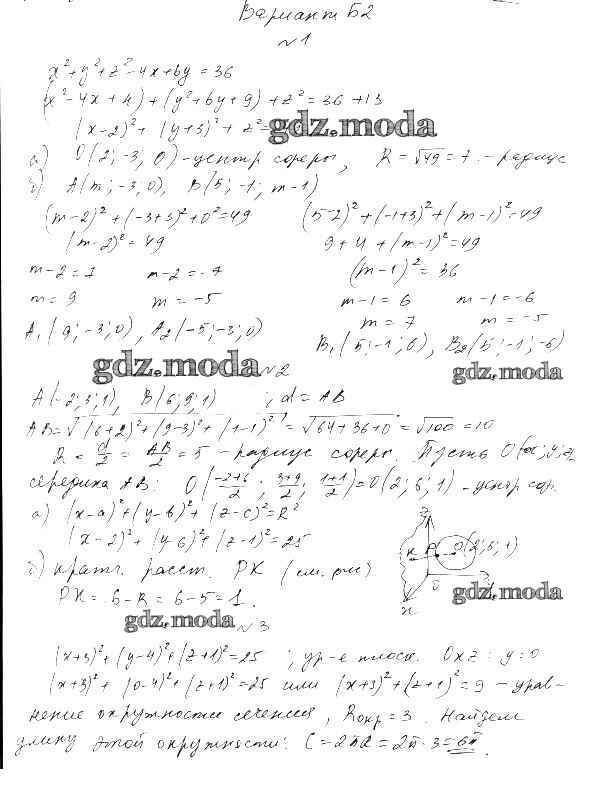 Вариант Б2
№1
x²+y²+z²-4x+6y=36
(x²-4x+4)+(y²+6y+9)+z²=36+13
(x-2)²+(y+3)²+z²=
gdz.moda
а) O(2;-3;0)-центр сферы, R=√49=7 - радиус
б) A(m;-3;0), B(5;-1;m-1)
(m-2)²+(-3+3)²+0²=49 (5-2)²+(-1+3)²+(m-1)²=49
(m-2)²=49 9+4+(m-1)²=49
m-2=7 m-2=-7 (m-1)²=36
m=9 m=-5 m-1=6 m-1=-6
m=7 m=-5
A₁(9;-3;0), A₂(-5;-3;0) B₁(5;-1;6), B₂(5;-1;-6)
gdz.moda №2 gdz.moda
A(-2;3;1), B(6;9;1) ; d=AB
AB=√(6+2)²+(9-3)²+(1-1)²=√64+36+0=√100=10
R=d/2=AB/2=5 - радиус сферы. Пусть O(x;y;z)
середина AB: O(-2+6/2; 3+9/2; 1+1/2)=O(2;6;1)-центр сф.
а) (x-a)²+(y-b)²+(z-c)²=R²
(x-2)²+(y-6)²+(z-1)²=25
z K P O(2;6;1)
б) кратч. расст. PK (см. рис)
PK=6-R=6-5=1.
0 x gdz.moda
gdz.moda №3
(x+3)²+(y-4)²+(z+1)²=25 ; ур-е плоск. Oxz: y=0
(x+3)²+(0-4)²+(z+1)²=25 или (x+3)²+(z+1)²=9 - урав-
нение окружности сечения, Rокр=3. Найдем
длину этой окружности: C=2πR=2π·3=6π.